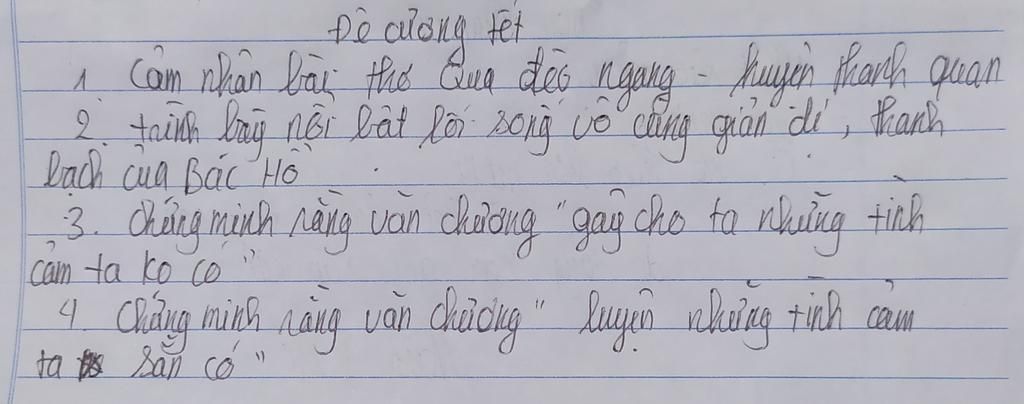 Đề cương tết
1. Cảm nhận bài thơ Qua đèo ngang - huyện thanh quan
2. trình bày nổi bật lối sống vô cùng giản dị, thanh
bạch của Bác Hồ
3. Chứng minh rằng văn chương "gây cho ta những tình
cảm ta ko có"
4. Chứng minh rằng văn chương "luyện những tình cảm
ta sẵn có"